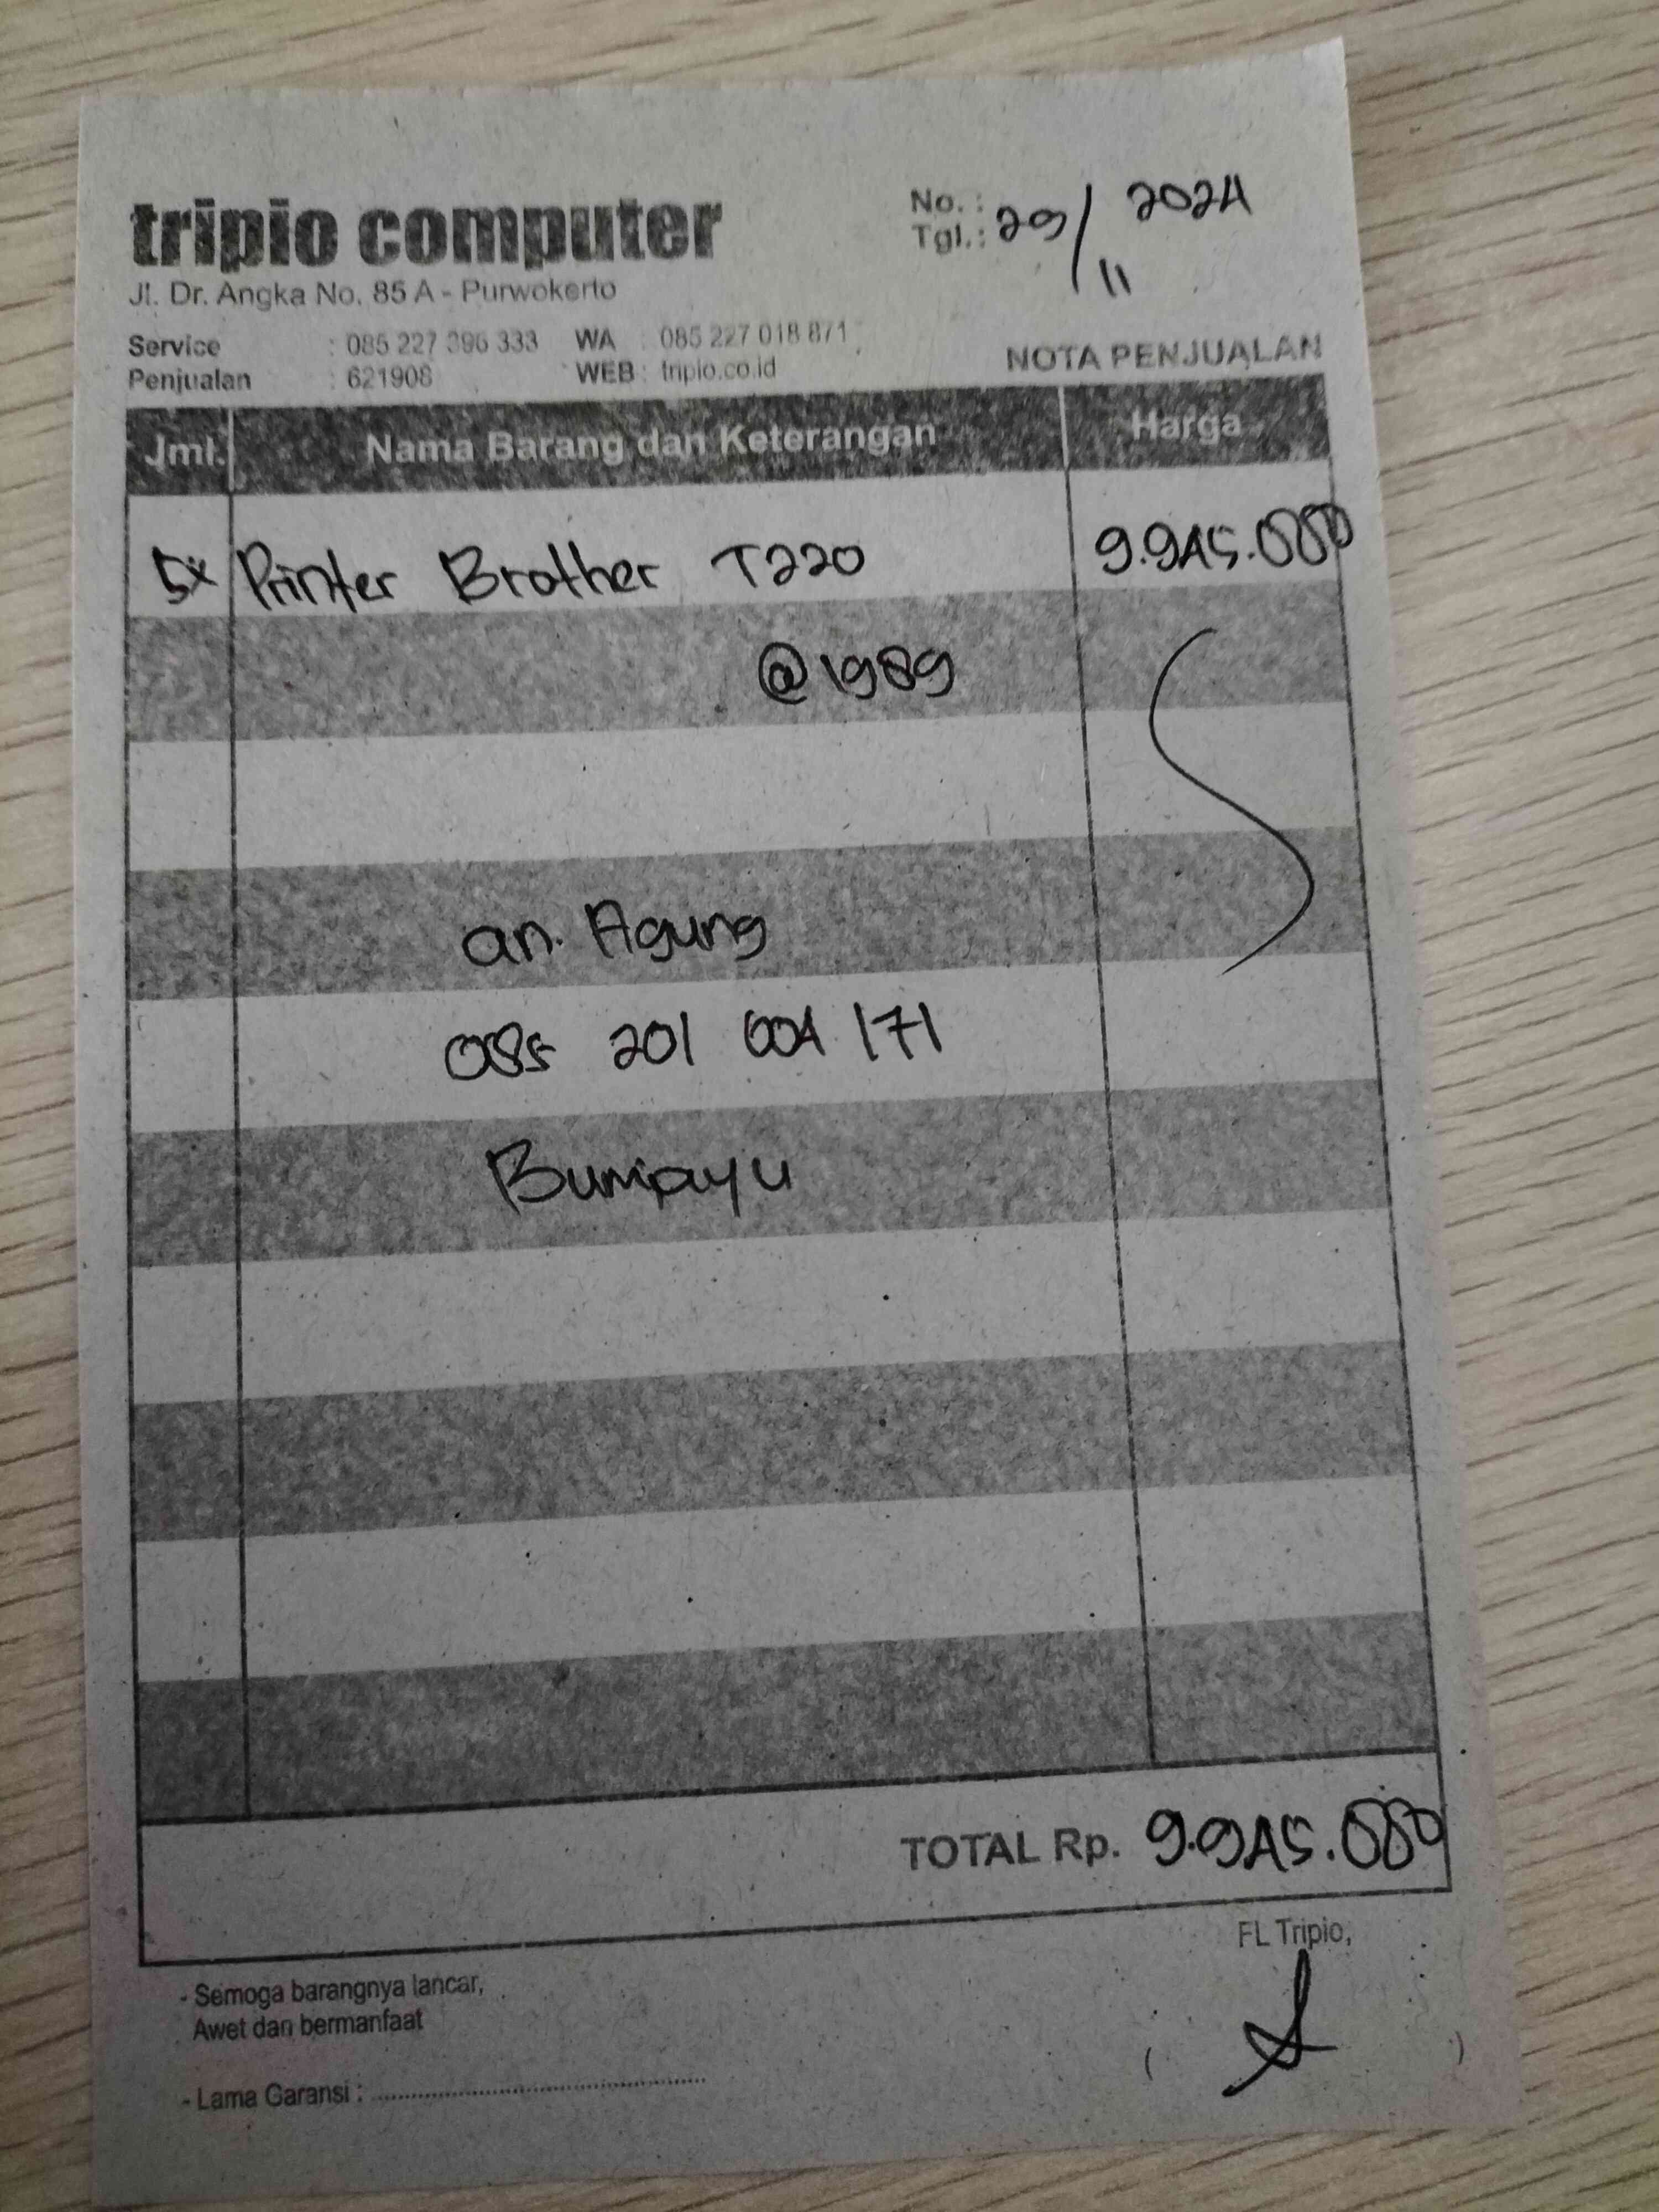 tripio computer
Jl. Dr. Angka No. 85 A - Purwokerto
No. :
Tgl. : 29/11 2024
Service : 085 227 396 333 WA : 085 227 018 871
Penjualan : 621908 WEB : tripio.co.id
NOTA PENJUALAN
Jml. Nama Barang dan Keterangan Harga
5x Printer Brother T220 9.945.000
@1989
an. Agung
085 201 004 171
Bumiayu
TOTAL Rp. 9.945.000
FL Tripio,
- Semoga barangnya lancar,
Awet dan bermanfaat
- Lama Garansi : ........................................
( )